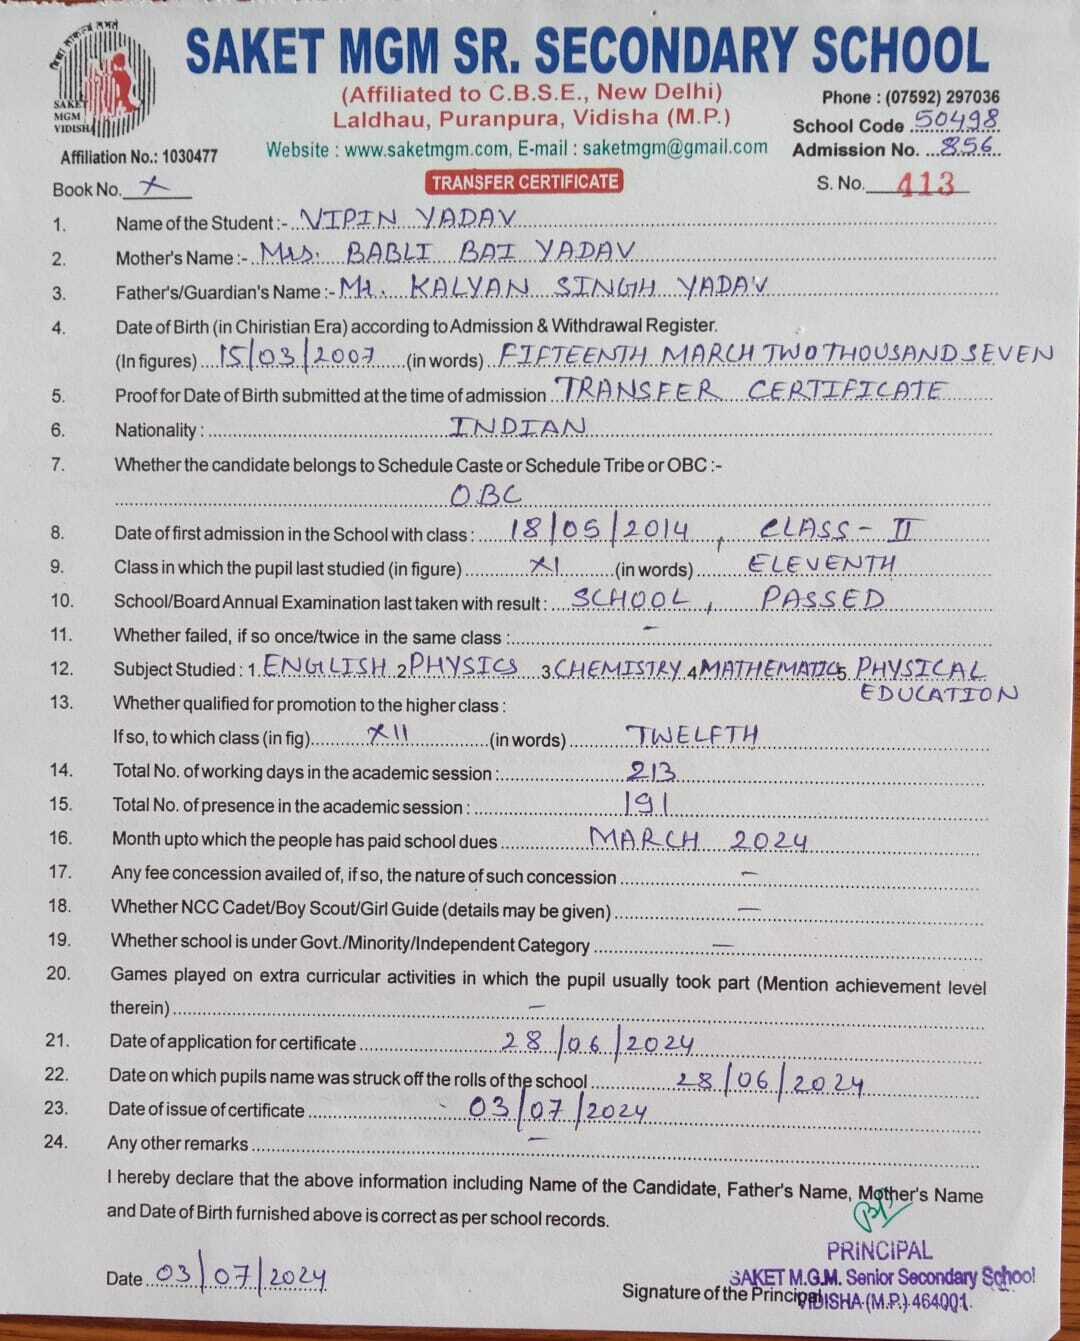 SAKET MGM SR. SECONDARY SCHOOL
(Affiliated to C.B.S.E., New Delhi)
Laldhau, Puranpura, Vidisha (M.P.)
Website : www.saketmgm.com, E-mail : saketmgm@gmail.com
SAKET
MGM
VIDISHA
Phone : (07592) 297036
School Code 50498
Affiliation No.: 1030477
Admission No. 856
Book No. X
TRANSFER CERTIFICATE
S. No. 413
1. Name of the Student :- VIPIN YADAV
2. Mother's Name :- Mrs. BABLI BAI YADAV
3. Father's/Guardian's Name :- Mr. KALYAN SINGH YADAV
4. Date of Birth (in Chiristian Era) according to Admission & Withdrawal Register.
(In figures) 15/03/2007 (in words) FIFTEENTH MARCH TWO THOUSAND SEVEN
5. Proof for Date of Birth submitted at the time of admission TRANSFER CERTIFICATE
6. Nationality : INDIAN
7. Whether the candidate belongs to Schedule Caste or Schedule Tribe or OBC :-
OBC
8. Date of first admission in the School with class : 18/05/2014, CLASS - II
9. Class in which the pupil last studied (in figure) XI (in words) ELEVENTH
10. School/Board Annual Examination last taken with result : SCHOOL, PASSED
11. Whether failed, if so once/twice in the same class : -
12. Subject Studied : 1 ENGLISH 2 PHYSICS 3 CHEMISTRY 4 MATHEMATICS 5 PHYSICAL
EDUCATION
13. Whether qualified for promotion to the higher class :
If so, to which class (in fig) XII (in words) TWELFTH
14. Total No. of working days in the academic session : 213
15. Total No. of presence in the academic session : 191
16. Month upto which the people has paid school dues MARCH 2024
17. Any fee concession availed of, if so, the nature of such concession -
18. Whether NCC Cadet/Boy Scout/Girl Guide (details may be given) -
19. Whether school is under Govt./Minority/Independent Category -
20. Games played on extra curricular activities in which the pupil usually took part (Mention achievement level
therein) -
21. Date of application for certificate 28/06/2024
22. Date on which pupils name was struck off the rolls of the school 28/06/2024
23. Date of issue of certificate 03/07/2024
24. Any other remarks -
I hereby declare that the above information including Name of the Candidate, Father's Name, Mother's Name
and Date of Birth furnished above is correct as per school records.
PRINCIPAL
Date 03/07/2024
SAKET M.G.M. Senior Secondary School
Signature of the Principal
VIDISHA (M.P.) 464001